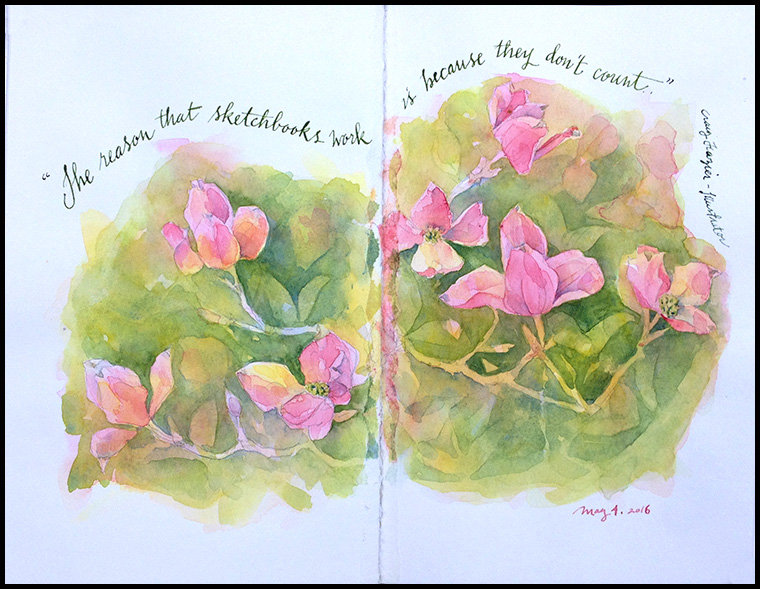 “The reason that sketchbooks work
is because they don't count.”
Craig Frazier - Illustrator
May 4. 2016